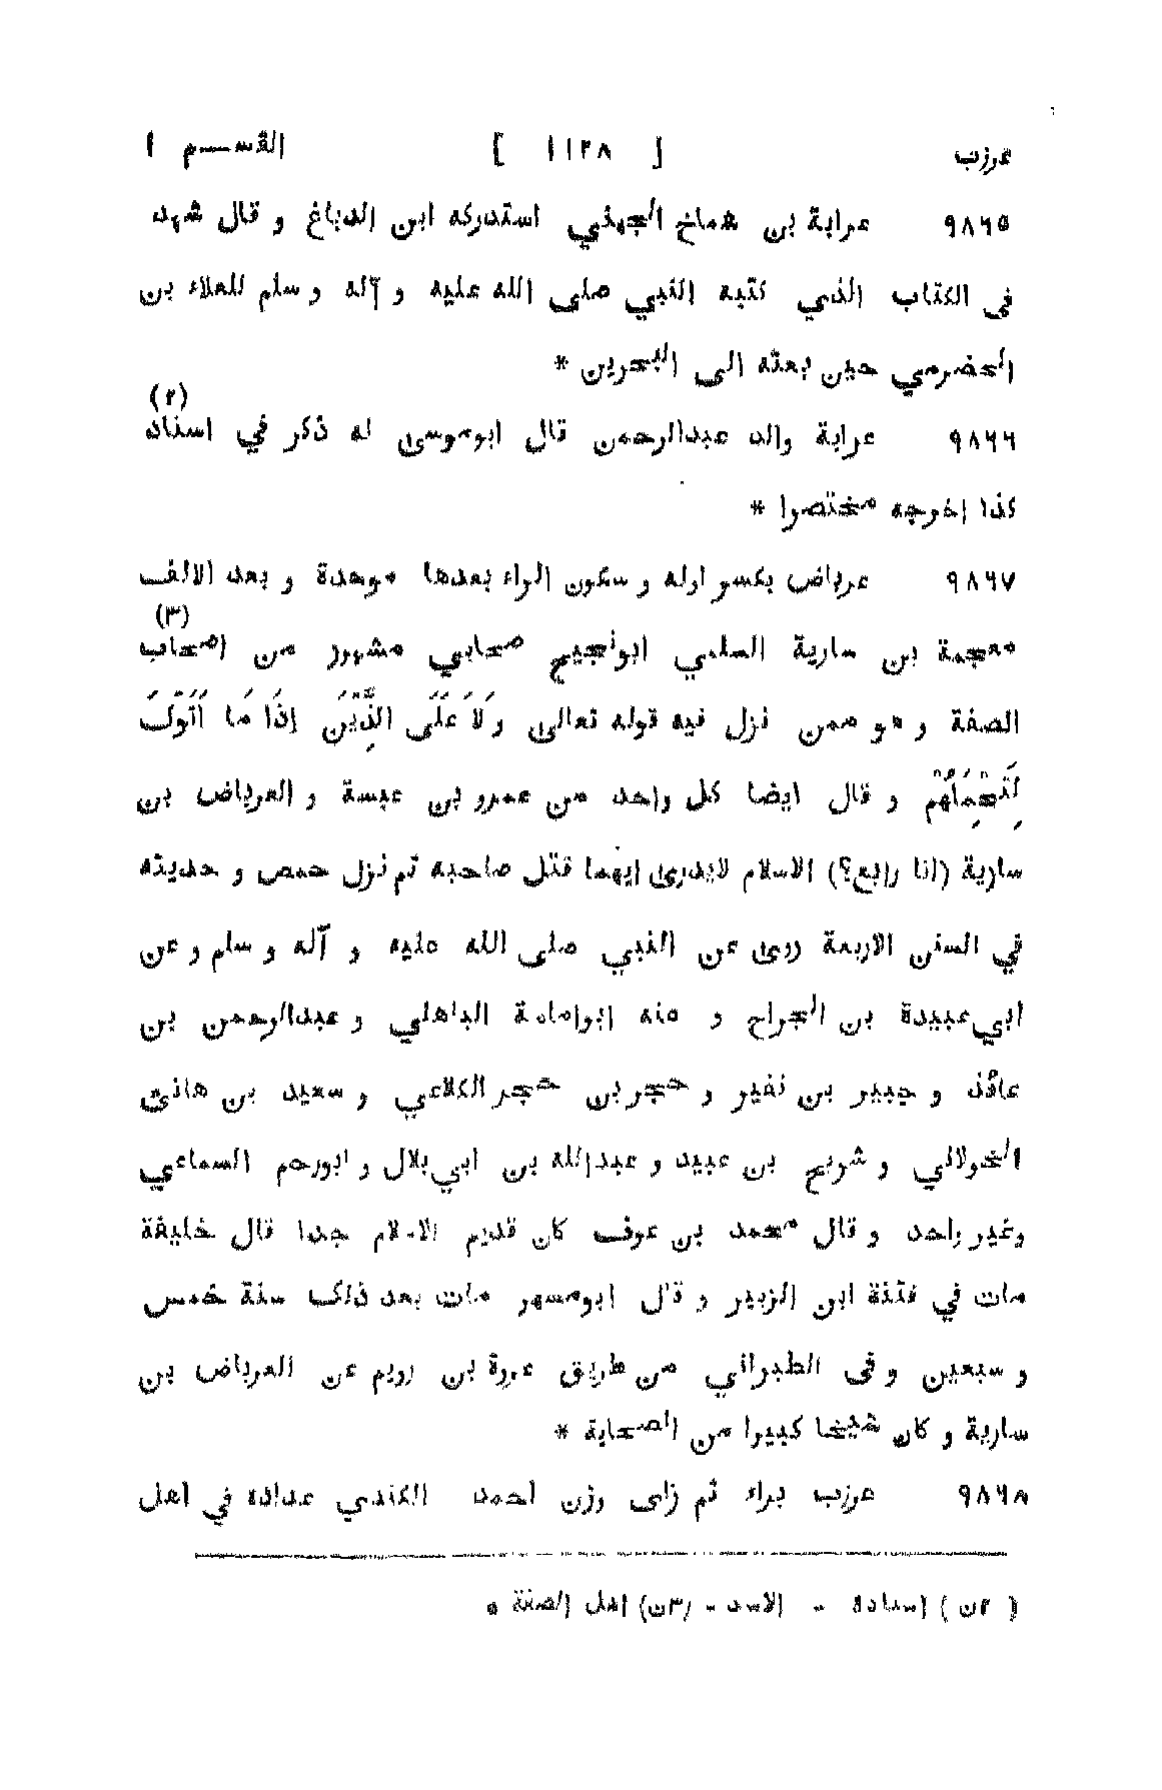 عرزب [ ١١٢٨ ] القسم ١
٩٨٦٥ عرابة بن شماخ الجهني استدركه ابن الدباغ و قال شهد
فى الكتاب الذي كتبه النبي صلى الله عليه و آله و سلم للعلاء بن
الحضرمي حين بعثه الى البحرين *
٩٨٦٦ عرابة والد عبدالرحمن قال ابوموسى له ذكر في اسناد (٢)
كذا اخرجه مختصرا *
٩٨٦٧ عرباض بكسر اوله و سكون الراء بعدها موحدة و بعد الالف
معجمة بن سارية السلمي ابونجيح صحابي مشهور من اصحاب (٣)
الصفة و هو ممن نزل فيه قوله تعالى وَلَا عَلَى الَّذِيْنَ إِذَا مَا أَتَوْكَ
لِتَحْمِلَهُمْ و قال ايضا كل واحد من عمرو بن عبسة و العرباض بن
سارية (انا رابع؟) الاسلام لايدرى ايهما قتل صاحبه ثم نزل حمص و حديثه
في السنن الاربعة روى عن النبي صلى الله عليه و آله و سلم و عن
ابي عبيدة بن الجراح و عنه ابوامامة الباهلي و عبدالرحمن بن
عائذ و جبير بن نفير و حجر بن حجر الكلاعي و سعيد بن هانئ
الخولاني و شريح بن عبيد و عبدالله بن ابي بلال و ابورهم السماعي
وغير واحد و قال محمد بن عوف كان قديم الاسلام جدا قال خليفة
مات في فتنة ابن الزبير و قال ابومسهر مات بعد ذلك سنة خمس
و سبعين و فى الطبراني من طريق عروة بن رويم عن العرباض بن
سارية و كان شيخا كبيرا من الصحابة *
٩٨٦٨ عرزب براء ثم زاى وزن احمد الكندي عداده في اهل
( ٢ن ) اسعادة - الاسد - (٣ن) اهل الصفة ٥